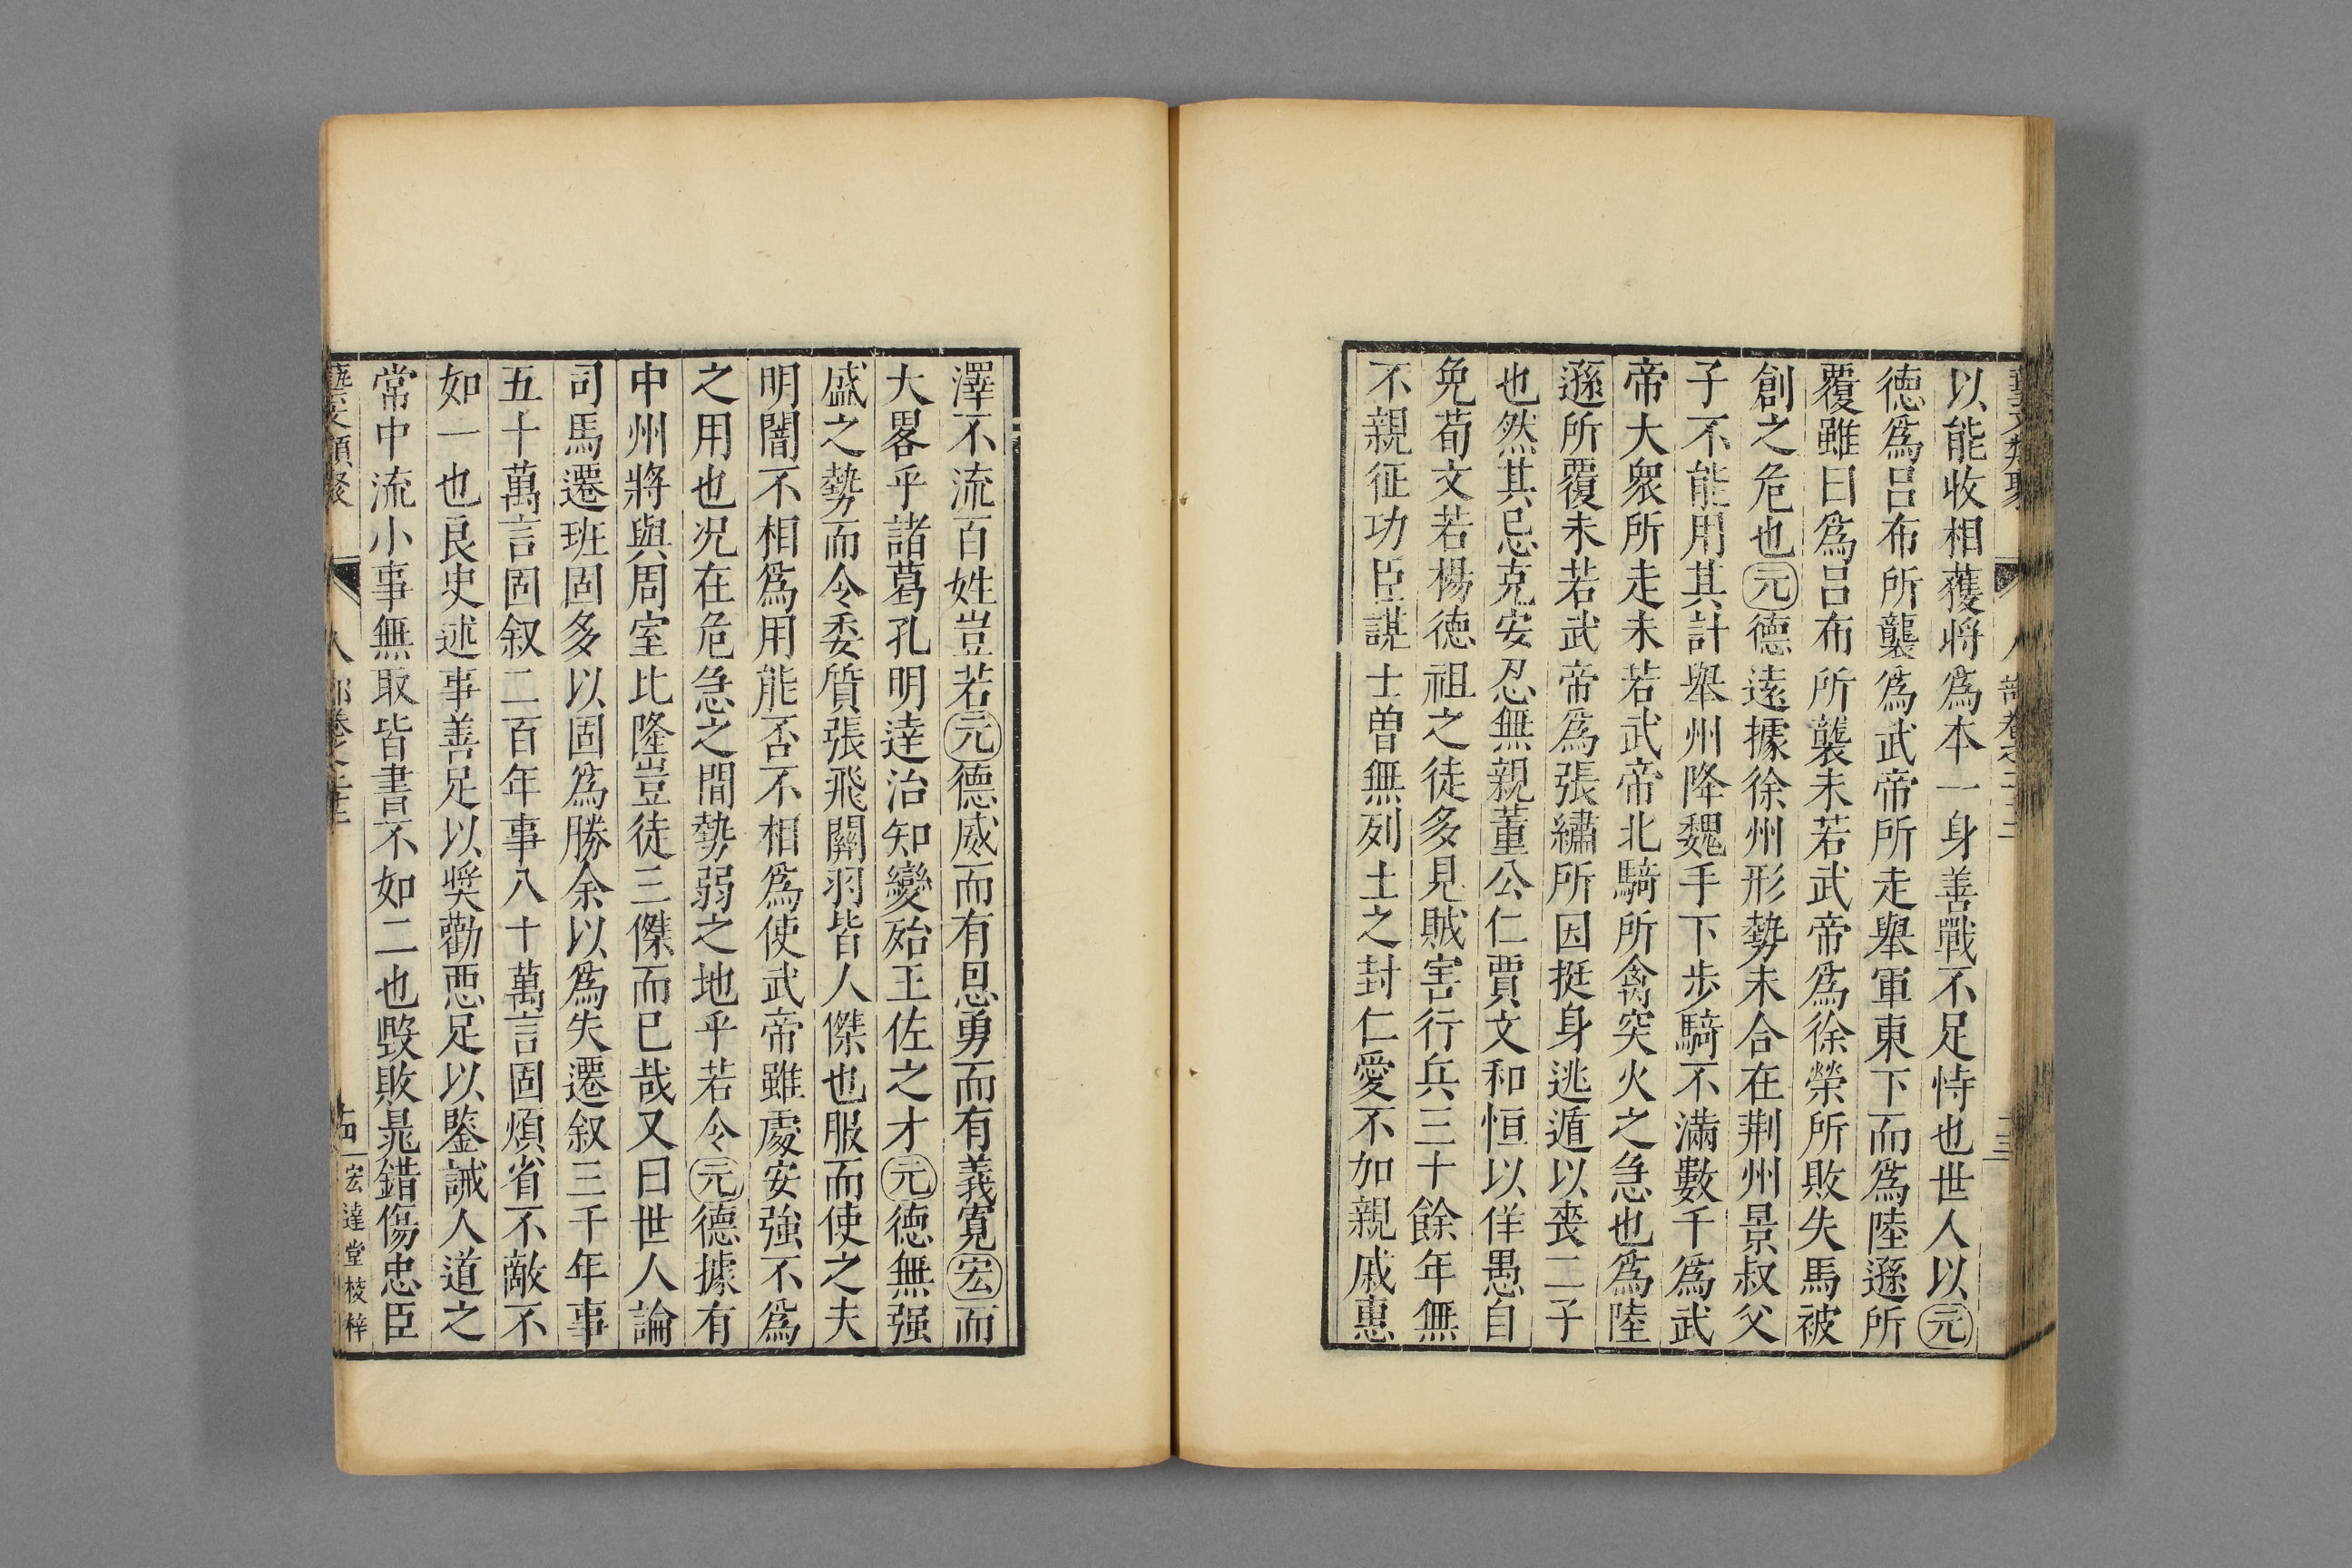 藝文類聚 人部卷之二十二 十三
以能收相獲將為本一身善戰不足恃也世人以元
德為呂布所襲為武帝所走舉軍東下而為陸遜所
覆雖曰為呂布所襲未若武帝為徐榮所敗失馬被
創之危也元德遠據徐州形勢未合在荆州景叔父
子不能用其計舉州降魏手下步騎不滿數千為武
帝大衆所走未若武帝北騎所禽突火之急也為陸
遜所覆未若武帝為張繡所因挺身逃遁以喪二子
也然其忌克安忍無親董公仁賈文和恒以佯愚自
免荀文若楊德祖之徒多見賊害行兵三十餘年無
不親征功臣謀士曽無列土之封仁愛不加親戚惠
澤不流百姓豈若元德威而有恩勇而有義寛宏而
大畧乎諸葛孔明達治知變殆王佐之才元德無强
盛之勢而令委質張飛關羽皆人傑也服而使之夫
明闇不相為用能否不相為使武帝雖處安強不為
之用也况在危急之間勢弱之地乎若令元德據有
中州將與周室比隆豈徒三傑而已哉又曰世人論
司馬遷班固多以固為勝余以為失遷叙三千年事
五十萬言固叙二百年事八十萬言固煩省不敵不
如一也良史述事善足以奬勸惡足以鑒誡人道之
常中流小事無取皆書不如二也毀敗鼂錯傷忠臣
藝文類聚 人部卷之二十二 十四 宏達堂校梓